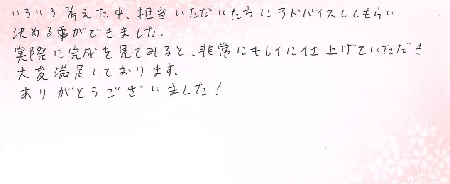 いろいろ考えた中、担当いただいた方にアドバイスしてもらい
決める事ができました。
実際に完成を見てみると、非常にキレイに仕上げていただき
大変満足しております。
ありがとうございました！